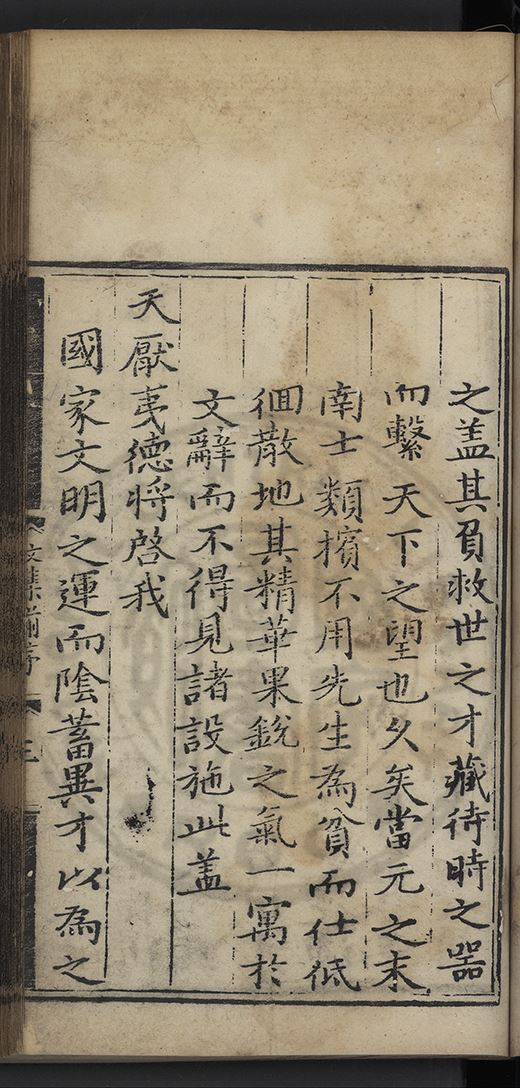 之盖其負救世之才藏待時之器
而繫天下之望也久矣當元之末
南士類擯不用先生為貧而仕低
徊散地其精華果銳之氣一寓於
文辭而不得見諸設施此盖
天厭夷德將啓我
國家文明之運而陰蓄異才以為之
文集前序
三